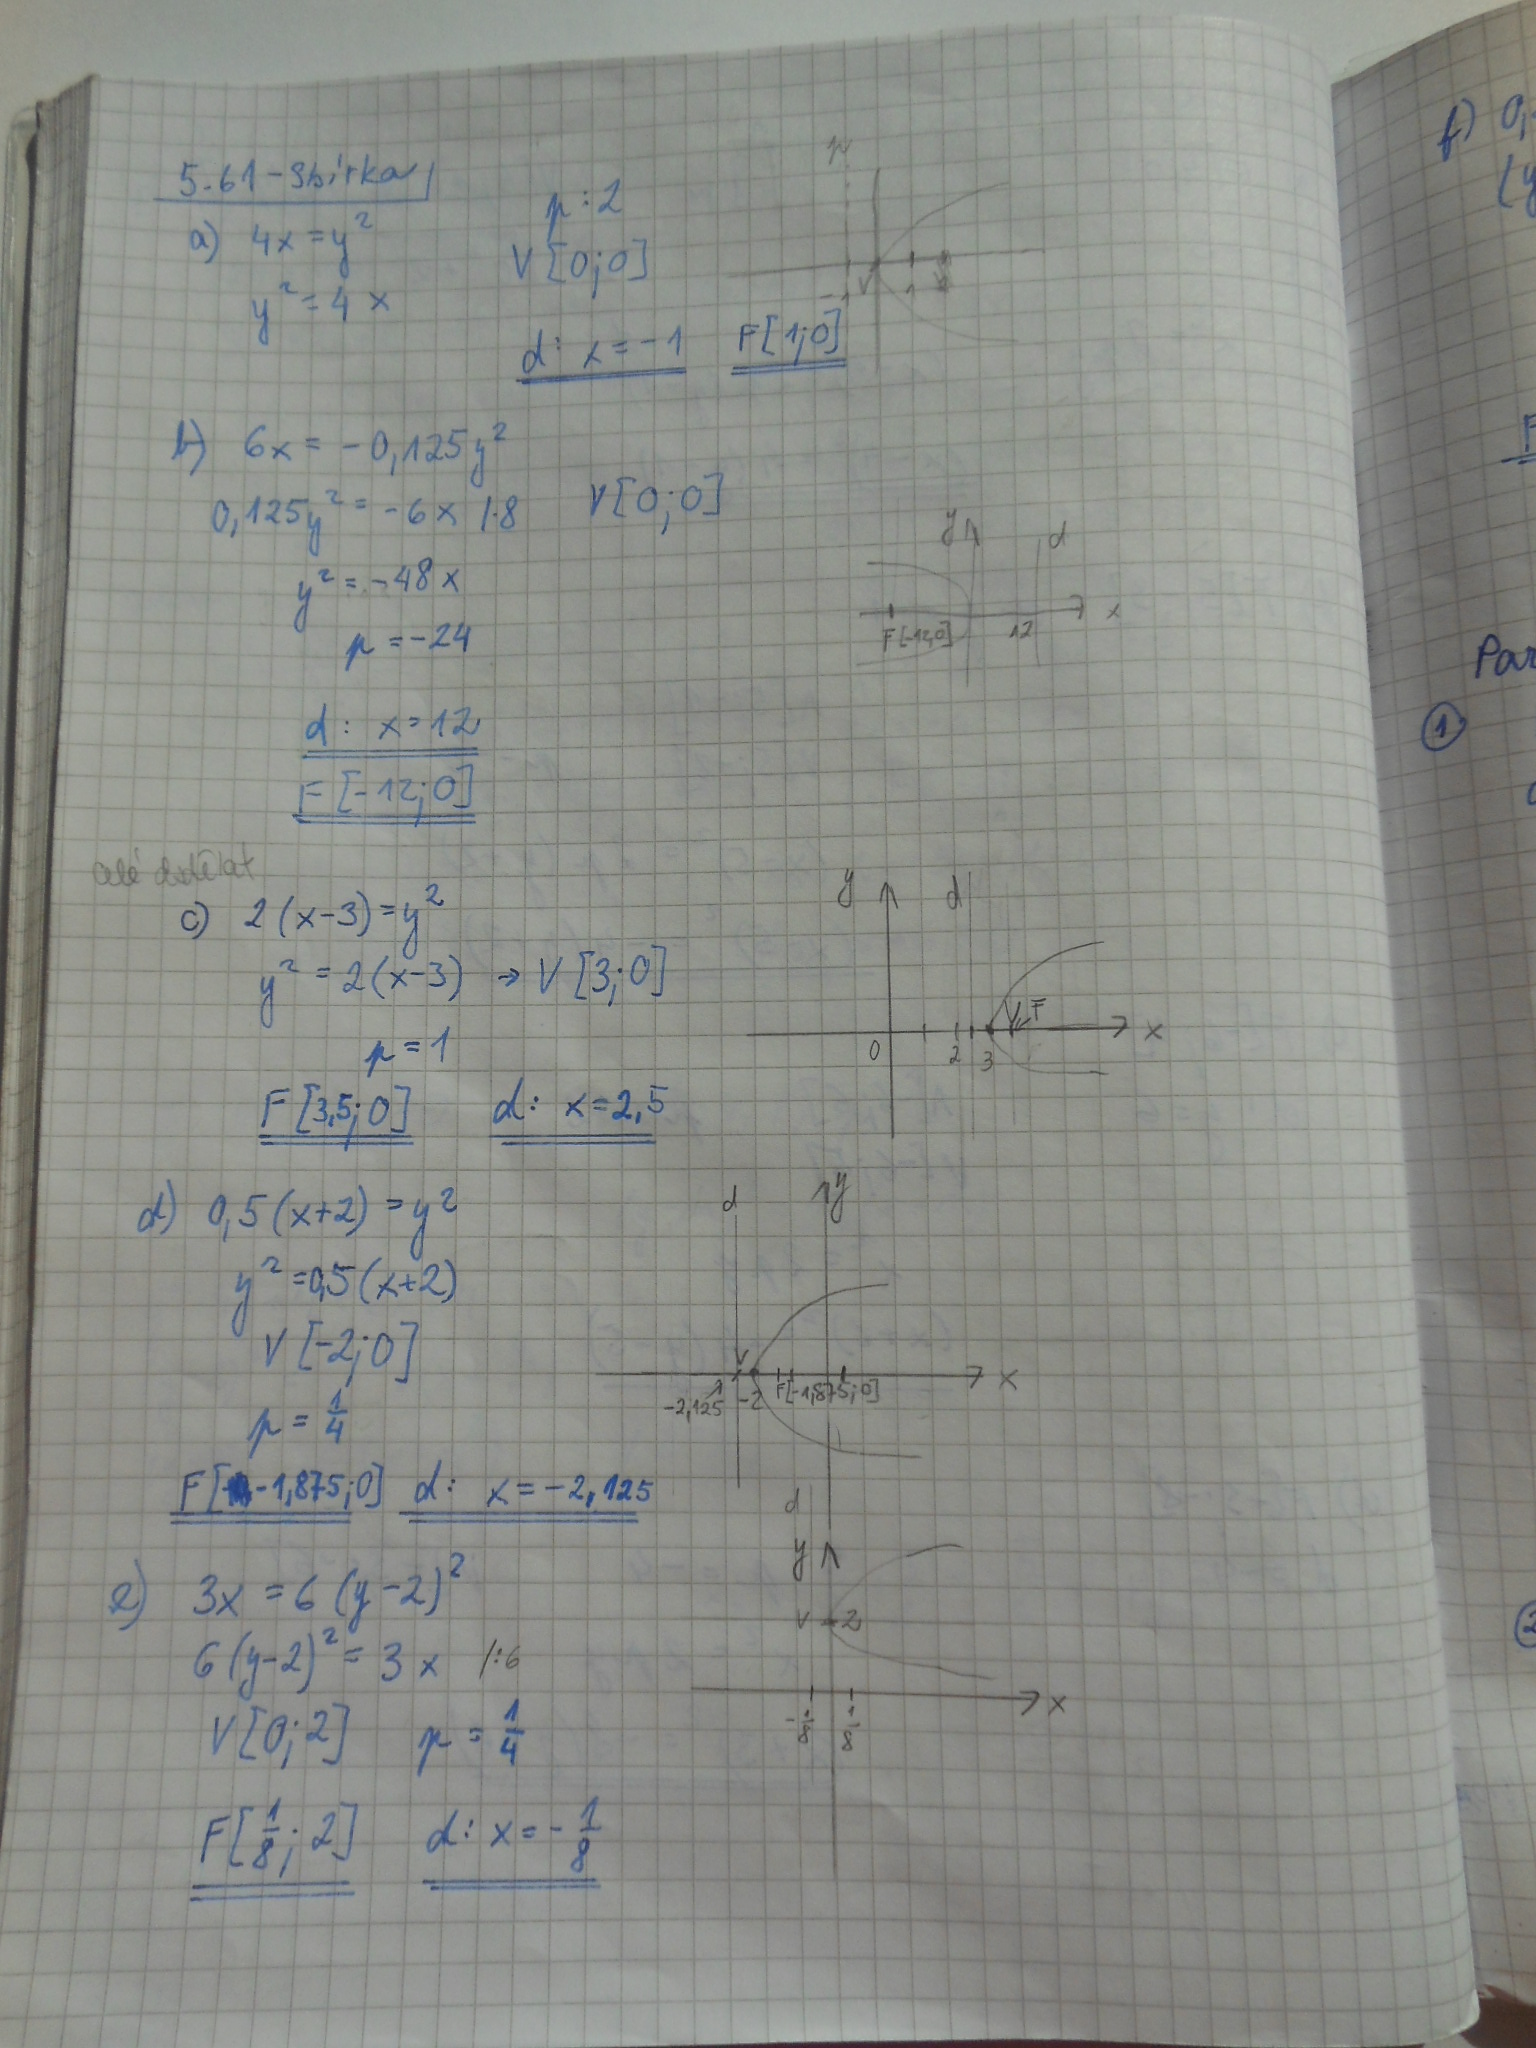 5.61 - Sbírka
a) 4x = y²
y² = 4x
p : 2
V [0;0]
d: x = -1 F[1;0]
p
-1 V 1
b) 6x = -0,125y²
0,125y² = -6x /·8 V[0;0]
y² = -48x
p = -24
d: x = 12
F [-12;0]
y d
F[-12,0] 12 x
celé dodělat
c) 2(x-3) = y²
y² = 2(x-3) → V [3;0]
p = 1
F [3,5;0] d: x = 2,5
y d
V F
0 2 3 x
d) 0,5(x+2) = y²
y² = 0,5(x+2)
V [-2;0]
p = 1/4
F[-1,875;0] d: x = -2,125
d y
V
-2,125 -2 F[-1,875;0] x
e) 3x = 6(y-2)²
6(y-2)² = 3x /:6
V[0;2] p = 1/4
F[1/8;2] d: x = -1/8
d
y
V 2
-1/8 1/8 x
f) 0,
(y
F
Par
1
2